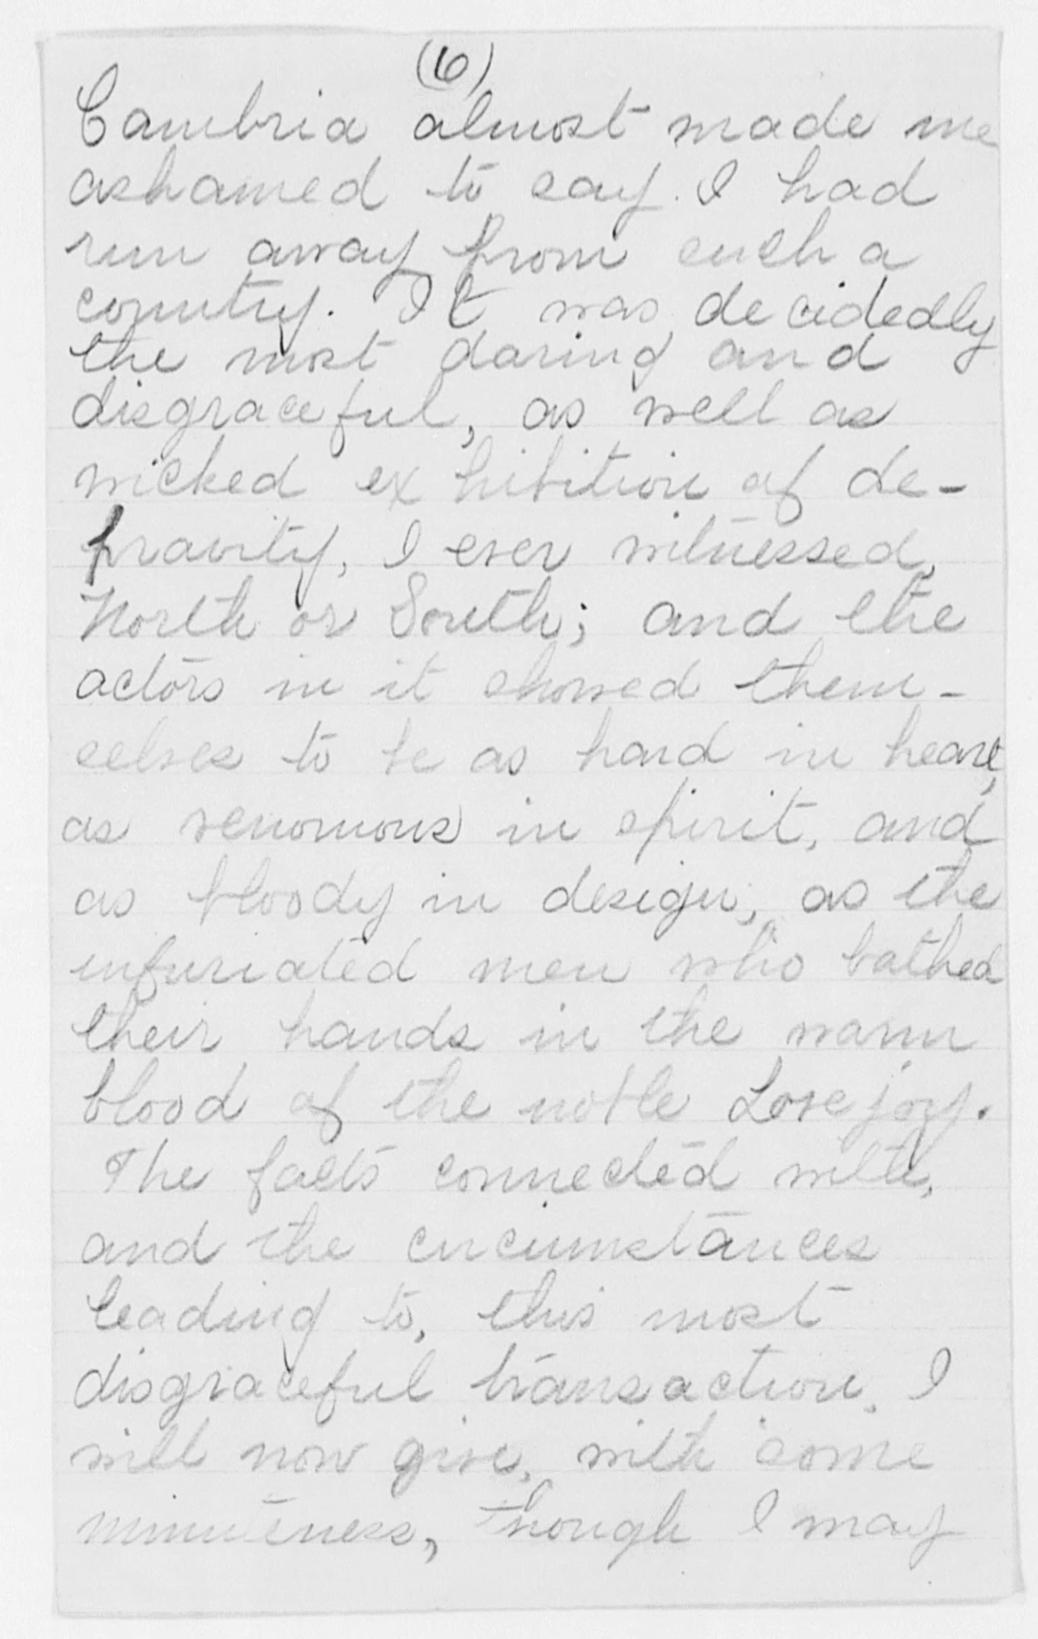 (6)
Cambria almost made me
ashamed to say I had
run away from such a
country. It was decidedly
the most daring and
disgraceful, as well as
wicked exhibition of de-
pravity, I ever witnessed,
North or South; and the
actors in it showed them-
selves to be as hard in heart,
as venomous in spirit, and
as bloody in design, as the
infuriated men who bathed
their hands in the warm
blood of the noble Lovejoy.
The facts connected with,
and the circumstances
leading to, this most
disgraceful transaction, I
will now give, with some
minuteness, though I may